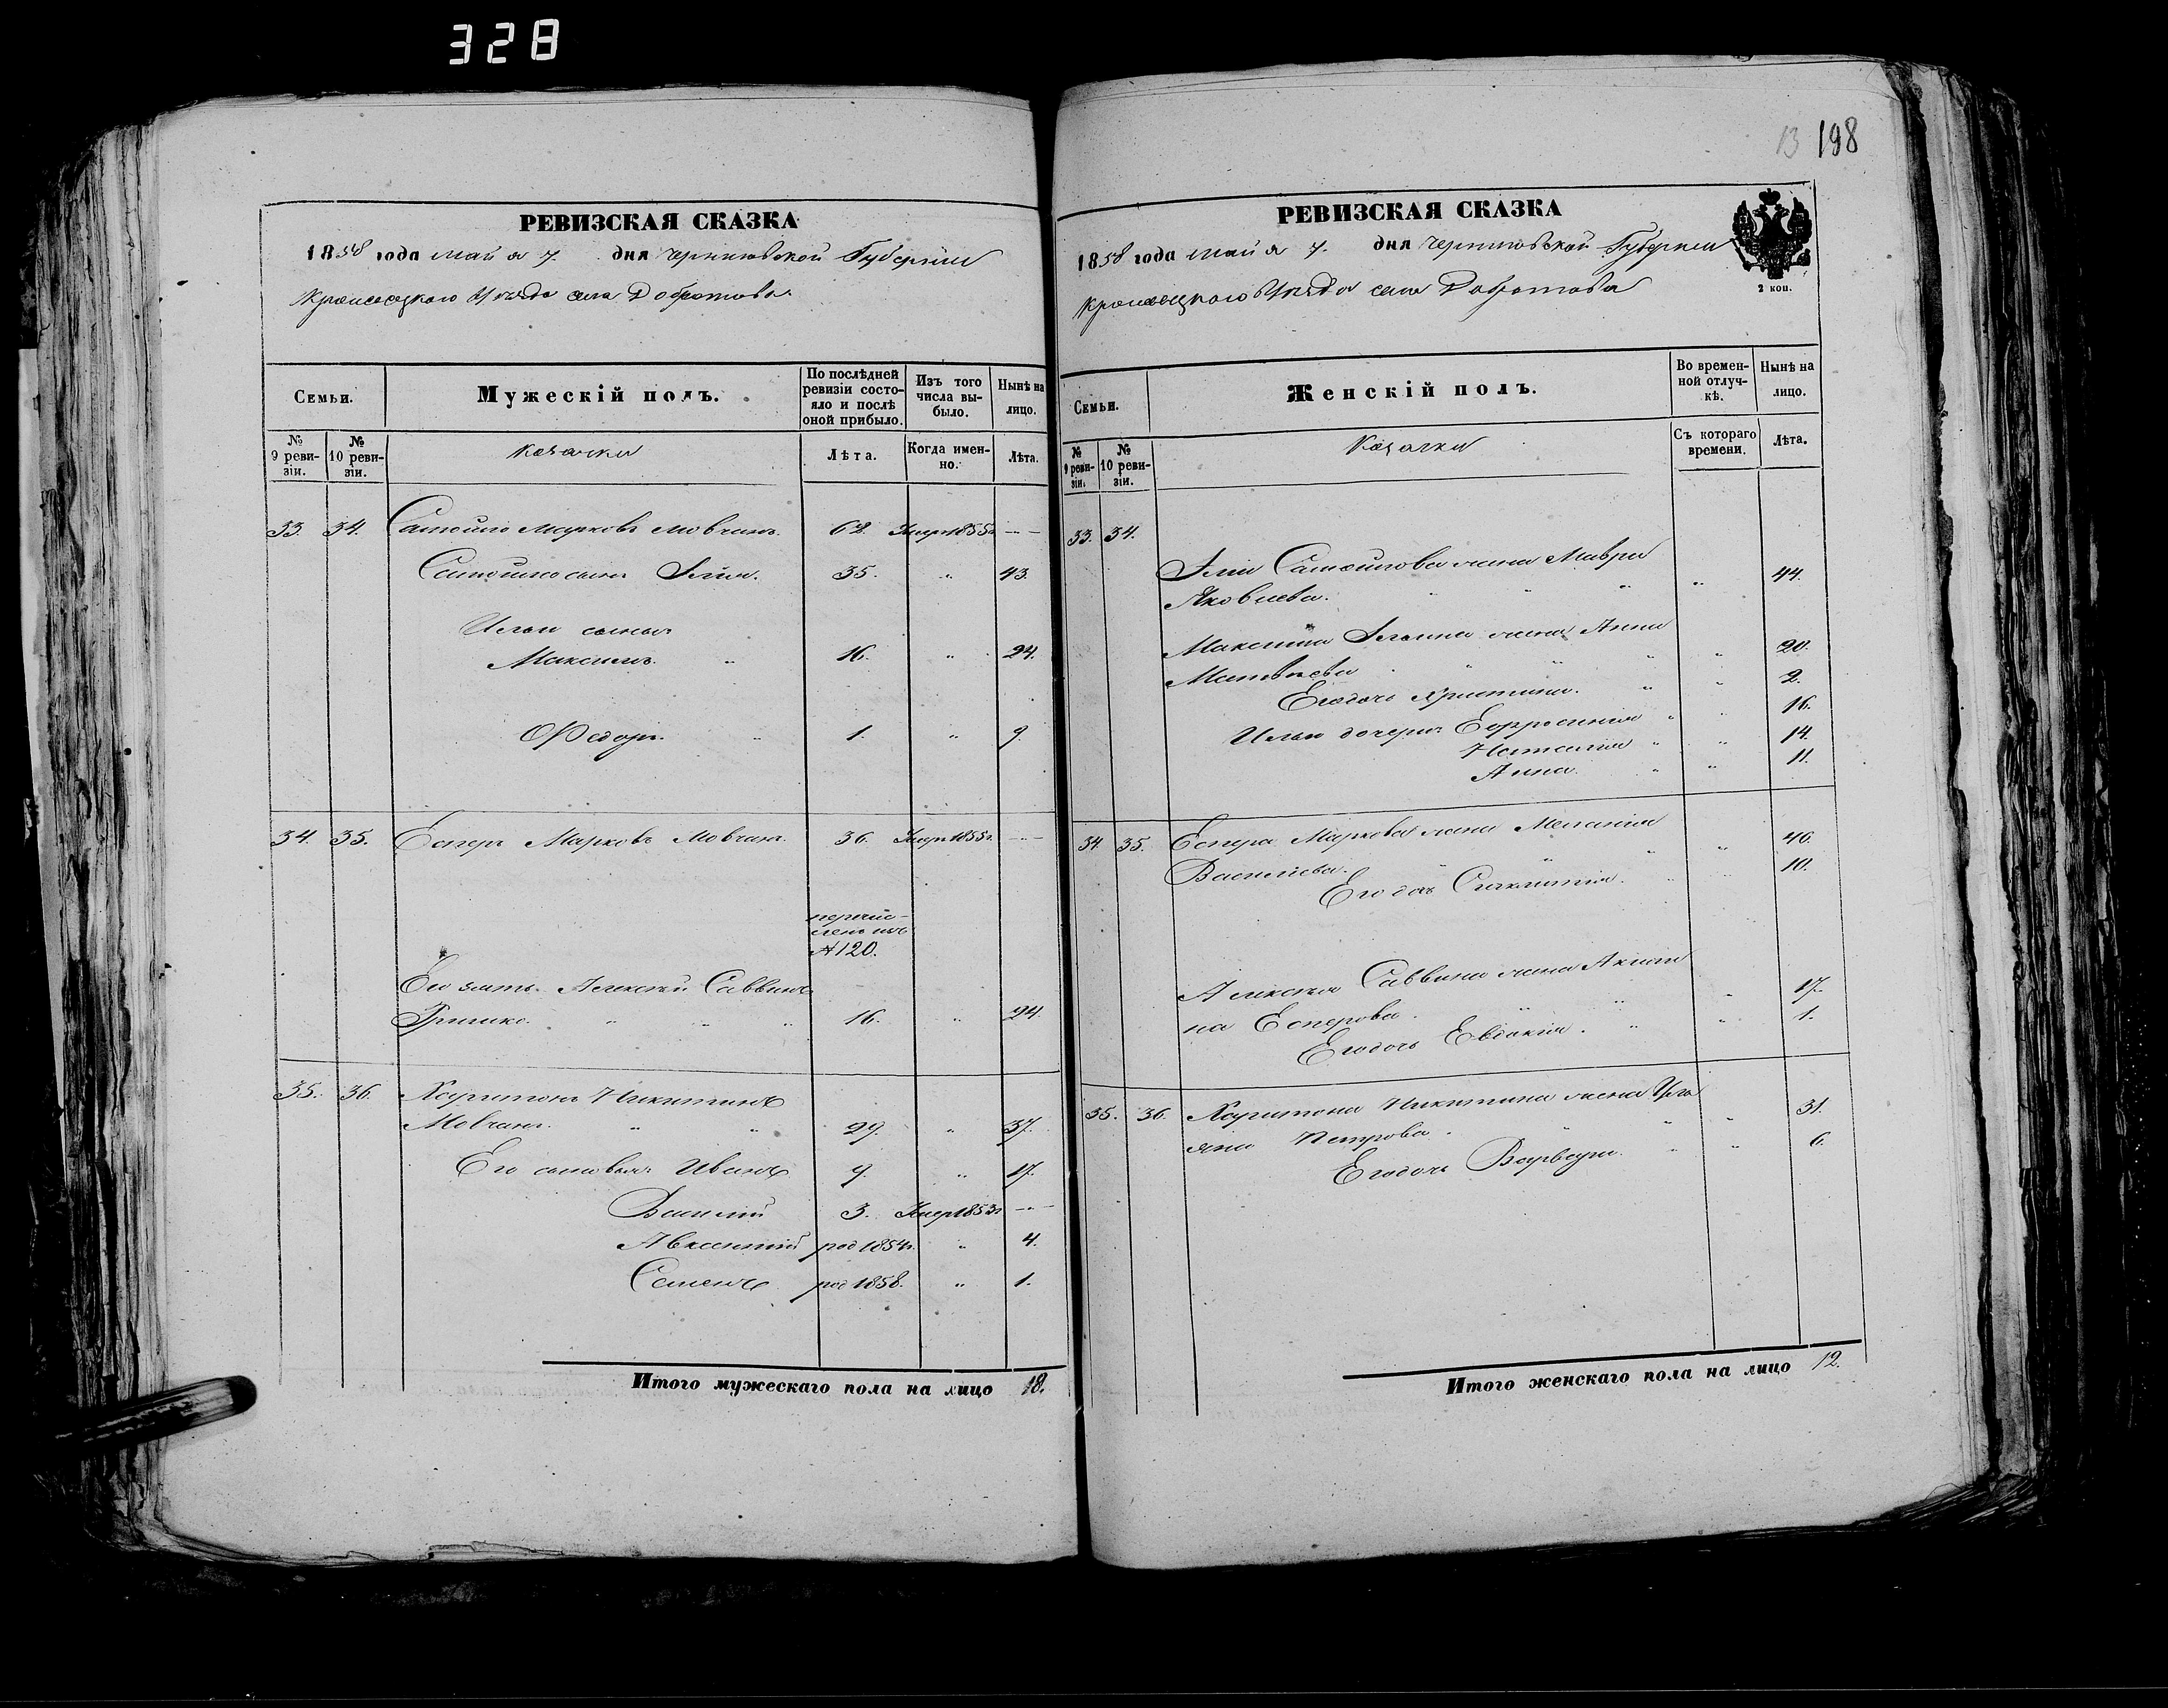 328
РЕВИЗСКАЯ СКАЗКА
1858 года мая 7. дня Черниговской Губернии
Кролевецкого Уезда села Добротова.
Семьи.
Мужескій полъ.
По послѣдней ревизіи состояло и послѣ оной прибыло.
Изъ того числа выбыло.
Нынѣ на лицо.
№ 9 ревизіи.
№ 10 ревизіи.
Лѣта.
Когда именно.
Лѣта.
33. 34. Самойло Марковъ Мовчанъ. 62. Умер. 1855г. — —
35. " 43.
Ильи сыновья
Максимъ. " 16. " 24.
Федоръ. " 1. " 9.
34. 35. Еспер Марковъ Мовчанъ. 36. Умер. 1855г. — —
перечислен из
№120.
Его зять Алексей Саввинъ
16. " 24.
35. 36. Харитонъ Никитинъ
Мовчанъ. " " 29. " 37.
Его сыновья Иванъ 9. " 17.
Василий 3. Умер 1853г. — —
Авксентий род 1854г. " 4.
Семенъ род 1858. " 1.
Итого мужескаго пола на лицо 18.
13 198
РЕВИЗСКАЯ СКАЗКА
1858 года мая 7. дня Черниговской Губернии
Кролевецкого Уезда села Добротова
2 коп.
Семьи.
Женскій полъ.
Во временной отлучкѣ.
Нынѣ на лицо.
№ 9 ревизіи.
№ 10 ревизіи.
Козачки
Съ котораго времени.
Лѣта.
33. 34.
Ильи Самойлова жена Мавра
Яковлева. " " " " 44.
Максима Ильина жена Анна
Матвеева " " " " 20.
Его дочь Христина. " " 2.
Ильи дочери Ефросиния " " 16.
Наталия " " 14.
Анна. " " 11.
34. 35. Еспера Маркова жена Мелания
Васильева. " " " " 40.
Его дочь 10.
Алексея Саввина жена Акили
на Есперова. " " " 17.
Его дочь Евдокия. " " 1.
35. 36. Харитона Никитина жена Улья
яна Петрова. " " " 31.
Его дочь Варвара. " " 6.
Итого женскаго пола на лицо 12.